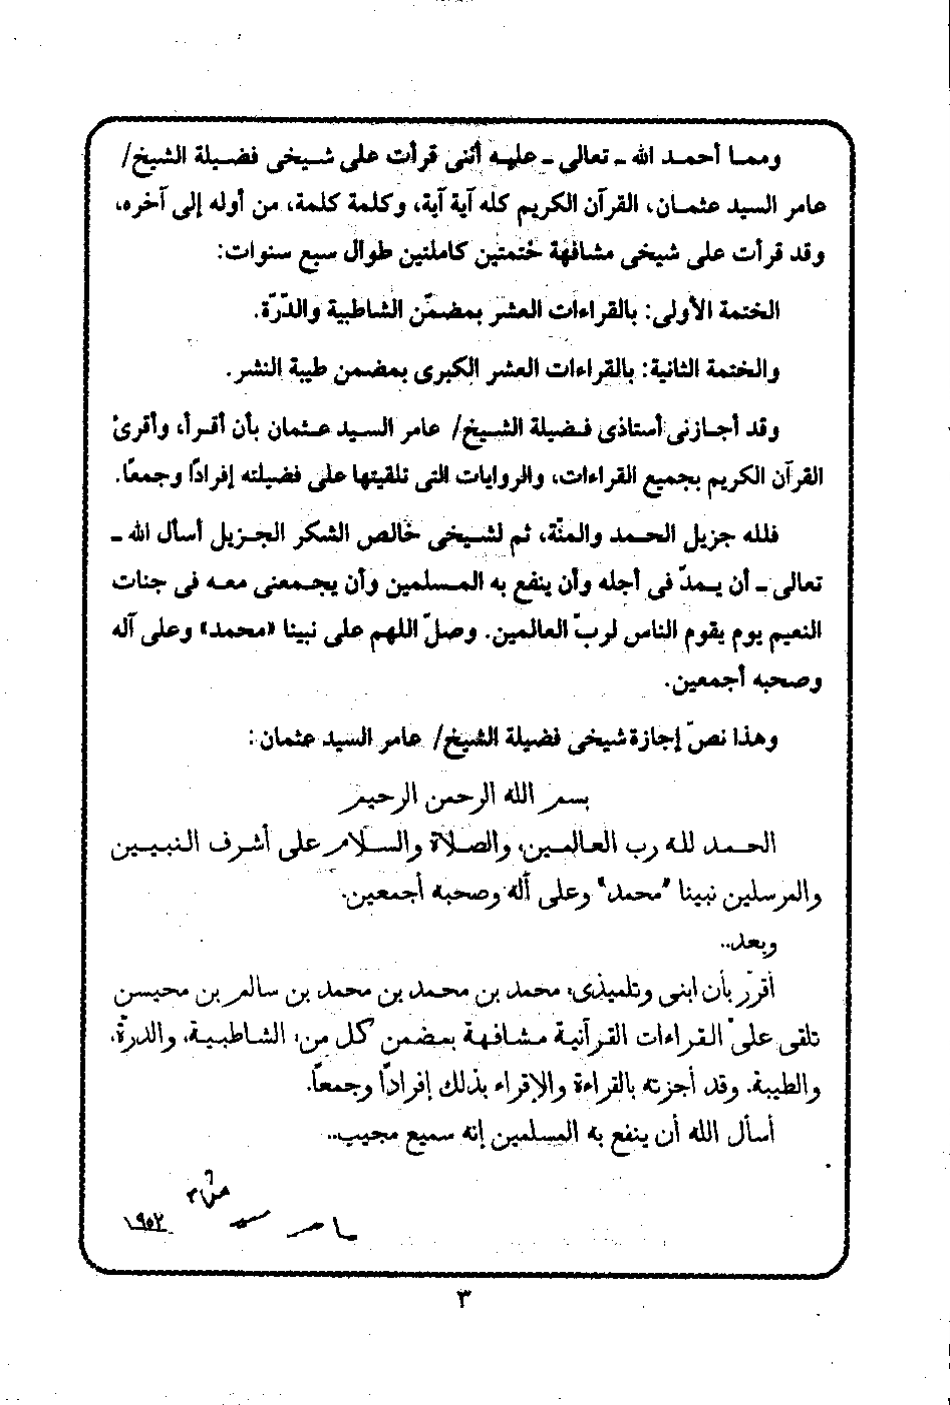 ومما أحمد الله ـ تعالى ـ عليه أننى قرأت على شيخى فضيلة الشيخ/
عامر السيد عثمان، القرآن الكريم كله آية آية، وكلمة كلمة، من أوله إلى آخره،
وقد قرأت على شيخى مشافهة ختمتين كاملتين طوال سبع سنوات:
الختمة الأولى: بالقراءات العشر بمضمّن الشاطبية والدّرّة.
والختمة الثانية: بالقراءات العشر الكبرى بمضمن طيبة النشر.
وقد أجازنى أستاذى فضيلة الشيخ/ عامر السيد عثمان بأن أقرأ، وأقرئ
القرآن الكريم بجميع القراءات، والروايات التى تلقيتها على فضيلته إفرادًا وجمعًا.
فلله جزيل الحمد والمنّة، ثم لشيخى خالص الشكر الجزيل أسأل الله ـ
تعالى ـ أن يمدّ فى أجله وأن ينفع به المسلمين وأن يجمعنى معه فى جنات
النعيم يوم يقوم الناس لربّ العالمين. وصلّ اللهم على نبينا «محمد» وعلى آله
وصحبه أجمعين.
وهذا نصّ إجازة شيخى فضيلة الشيخ/ عامر السيد عثمان:
بسم الله الرحمن الرحيم
الحمد لله رب العالمين، والصلاة والسلام على أشرف النبيين
والمرسلين نبينا "محمد" وعلى آله وصحبه أجمعين.
وبعد..
أقرّ بأن ابنى وتلميذى: محمد بن محمد بن محمد بن سالم بن محيسن
تلقى علىّ القراءات القرآنية مشافهة بمضمن كل من: الشاطبية، والدرّة،
والطيبة. وقد أجزته بالقراءة والإقراء بذلك إفرادًا وجمعًا.
أسأل الله أن ينفع به المسلمين إنه سميع مجيب..
عامر سيد عثمان
١٩٥٢
٣